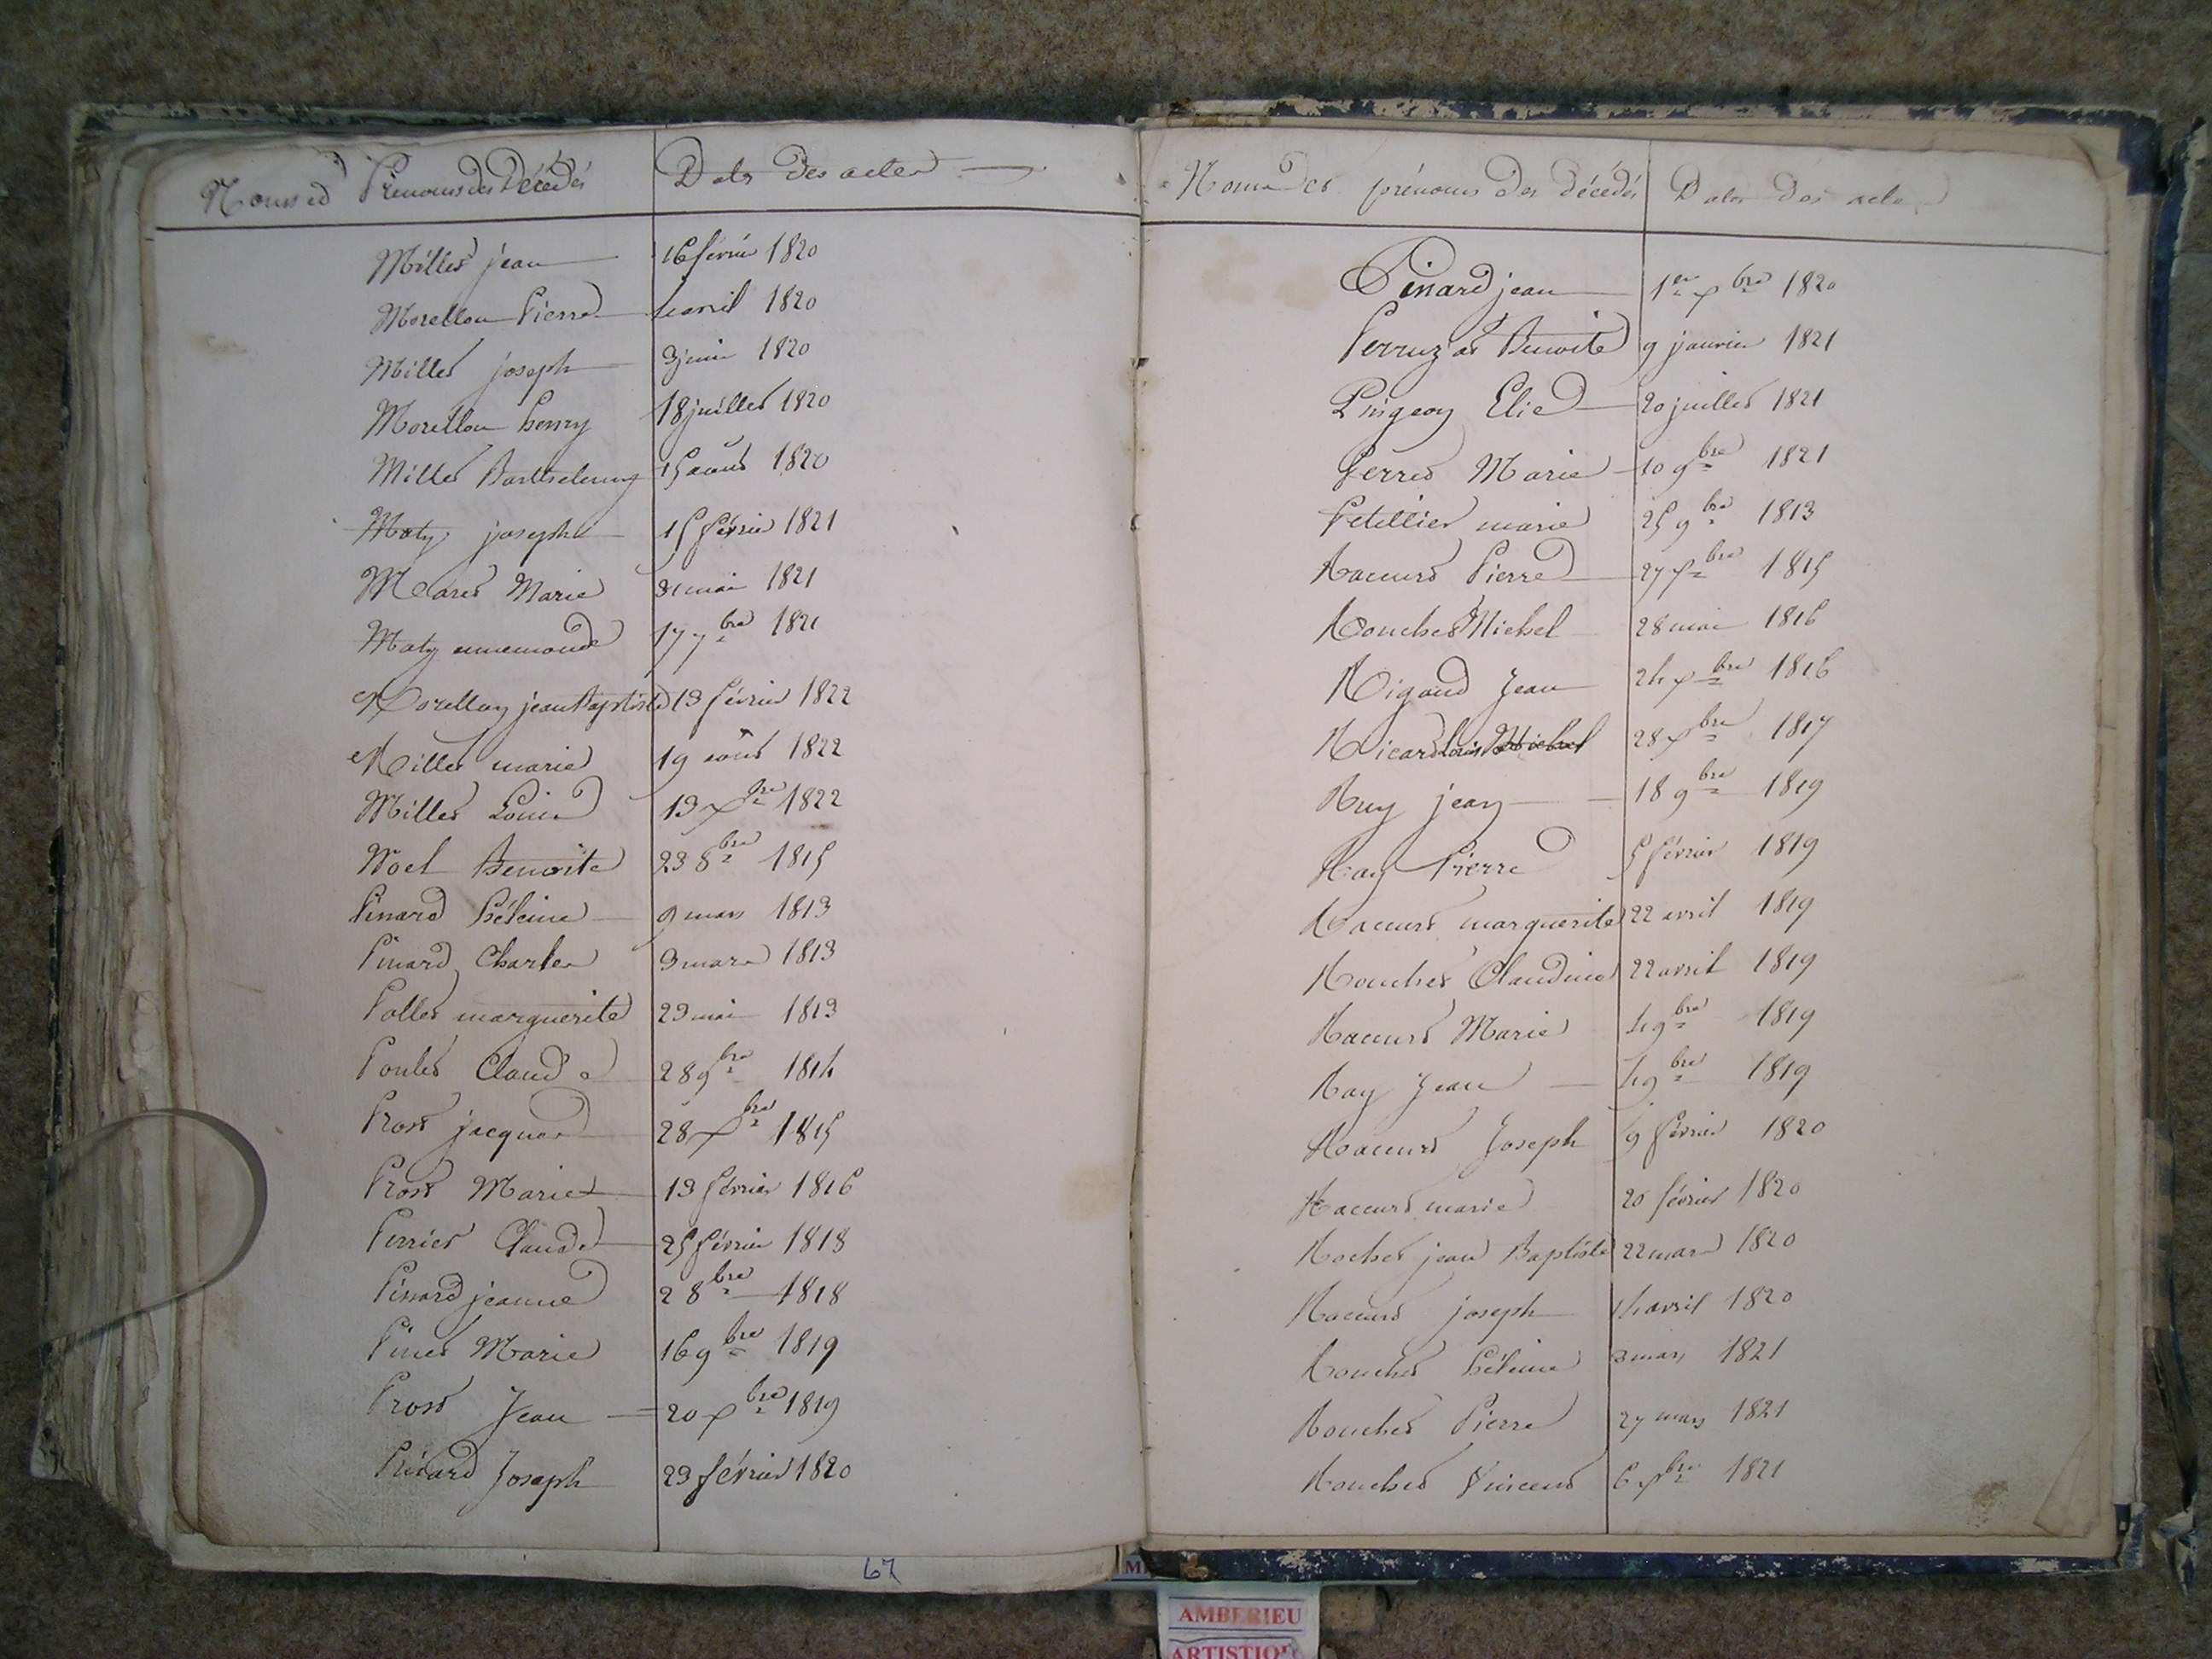 Noms et Prénoms des Décédés Date des actes
Millet jean 16 février 1820
Morellon Pierre 4 avril 1820
Millet joseph 3 juin 1820
Morellon henry 18 juillet 1820
Millet Barthelemy 15 août 1820
Maty joseph 15 février 1821
Maret Marie 31 mai 1821
Maty ennemonde 17 7bre 1821
Morellon jean Baptiste 13 février 1822
Millet marie 19 août 1822
Millet Louis 13 Xbre 1822
Noel Benoite 23 8bre 1815
Pinard héleine 9 mars 1813
Pinard Charles 3 mars 1813
Pollet marguerite 23 mai 1813
Poulet Claude 28 9bre 1814
Prost jacques 28 Xbre 1815
Prost Marie 13 février 1816
Perrier Claude 25 février 1818
Pinard jeanne 2 8bre 1818
Pinet Marie 16 9bre 1819
Prost Jean 20 Xbre 1819
Joseph 23 février 1820
67
Noms des prénoms des décédés Dates des actes
Pinard jean 1er Xbre 1820
Benoite 9 janvier 1821
Pingeon Elie 20 juillet 1821
Perret Marie 10 9bre 1821
Petellier marie 25 9bre 1813
Raccurt Pierre 27 Xbre 1815
Rouchet Michel 28 mai 1816
Rigaud Jean 24 Xbre 1816
Ricard Louis 28 Xbre 1817
Ruy jean 18 9bre 1819
Ray Pierre 5 février 1819
Raccurt marguerite 22 avril 1819
Rouchet Claudine 22 avril 1819
Raccurt Marie 4 9bre 1819
Ray Jean 4 9bre 1819
Raccurt Joseph 9 février 1820
Raccurt marie 20 février 1820
Rochet jean Baptiste 22 mars 1820
Raccurt joseph 14 avril 1820
Rouchet héleine 3 mars 1821
Rouchet Pierre 27 mars 1821
Rouchet Vincent 6 Xbre 1821
AMBERIEU